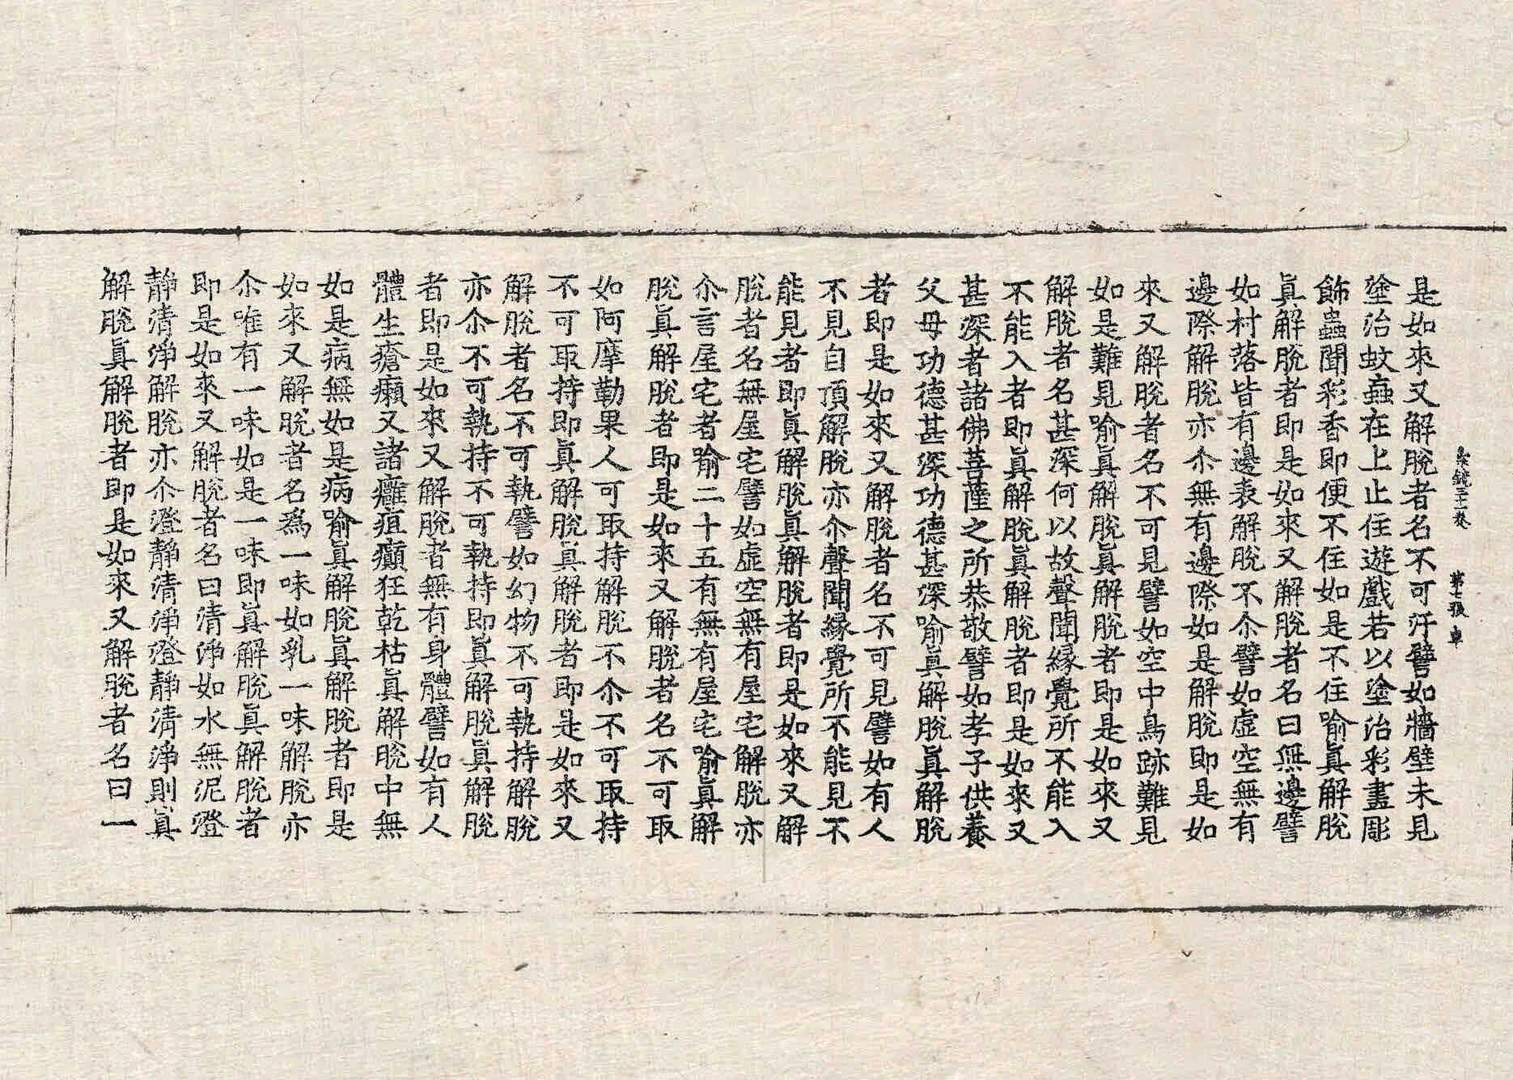 第七張 車
是如來又解脫者名不可汙譬如牆壁未見
塗治蚊蝱在上止住遊戲若以塗治彩畫彫
飾蟲聞彩香即便不住如是不住喻眞解脫
眞解脫者即是如來又解脫者名曰無邊譬
如村落皆有邊表解脫不尒譬如虛空無有
邊際解脫亦尒無有邊際如是解脫即是如
來又解脫者名不可見譬如空中鳥跡難見
如是難見喻眞解脫眞解脫者即是如來又
解脫者名甚深何以故聲聞緣覺所不能入
不能入者即眞解脫眞解脫者即是如來又
甚深者諸佛菩薩之所恭敬譬如孝子供養
父母功德甚深功德甚深喻眞解脫眞解脫
者即是如來又解脫者名不可見譬如有人
不見自頂解脫亦尒聲聞緣覺所不能見不
能見者即眞解脫眞解脫者即是如來又解
脫者名無屋宅譬如虛空無有屋宅解脫亦
尒言屋宅者喻二十五有無有屋宅喻眞解
脫眞解脫者即是如來又解脫者名不可取
如阿摩勒果人可取持解脫不尒不可取持
不可取持即眞解脫眞解脫者即是如來又
解脫者名不可執譬如幻物不可執持解脫
亦尒不可執持不可執持即眞解脫眞解脫
者即是如來又解脫者無有身體譬如有人
體生瘡癩又諸癰疽癲狂乾枯眞解脫中無
如是病無如是病喻眞解脫眞解脫者即是
如來又解脫者名爲一味如乳一味解脫亦
尒唯有一味如是一味即眞解脫眞解脫者
即是如來又解脫者名曰清淨如水無泥澄
靜清淨解脫亦尒澄靜清淨澄靜清淨則眞
解脫眞解脫者即是如來又解脫者名曰一